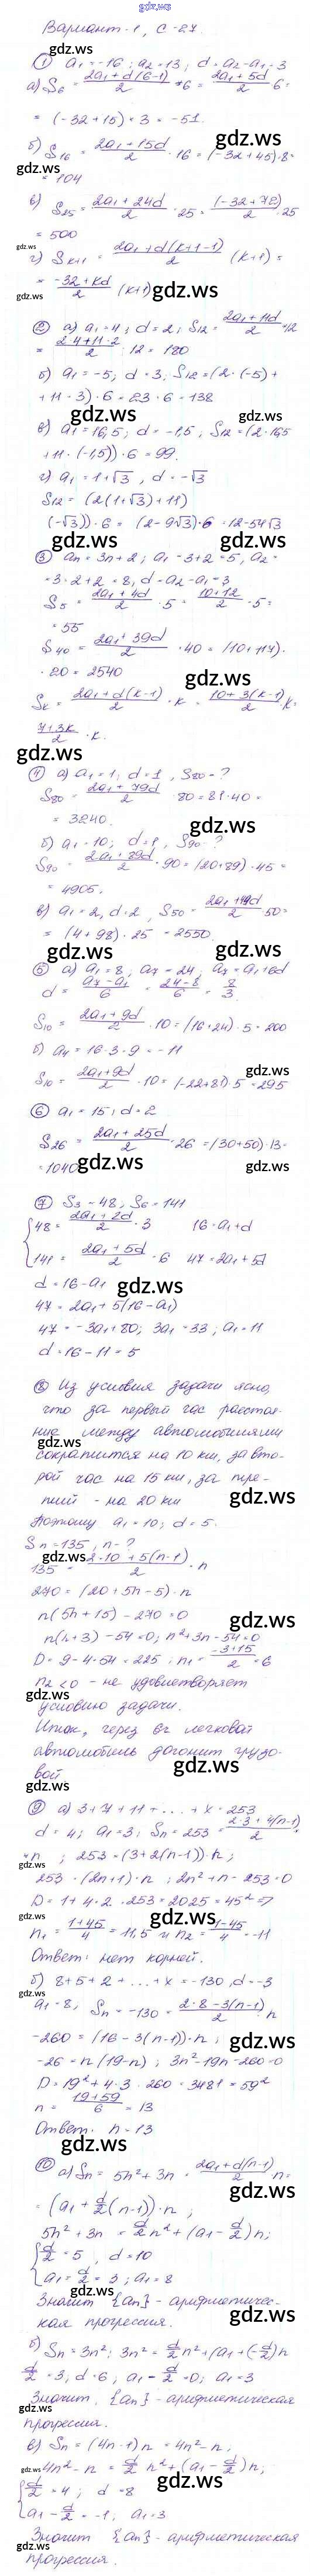 gdz.ws
Вариант-1, С-27
① a₁ = -16; a₂ = 13; d = a₂ - a₁ = 3
а) S₆ = (2a₁ + d(6-1))/2 · 6 = (2a₁ + 5d)/2 · 6 =
= (-32+15) · 3 = -51.
б) S₁₆ = (2a₁ + 15d)/2 · 16 = (-32+45) · 8 =
= 104
в) S₂₅ = (2a₁ + 24d)/2 · 25 = (-32+72)/2 · 25
= 500
г) Sₖ₊₁ = (2a₁ + d(k+1-1))/2 (k+1) =
= (-32+kd)/2 (k+1)
② а) a₁ = 4; d = 2; S₁₂ = (2a₁ + 11d)/2 · 12
= (2·4+11·2)/2 · 12 = 180
б) a₁ = -5; d = 3; S₁₂ = (2·(-5) +
+ 11·3) · 6 = 23 · 6 = 138
в) a₁ = 16,5; d = -1,5; S₁₂ = (2·16,5
+ 11·(-1,5)) · 6 = 99.
г) a₁ = 1+√3, d = -√3
S₁₂ = (2(1+√3) + 11)
(-√3)) · 6 = (2-9√3) · 6 = 12-54√3
③ aₙ = 3n+2; a₁ = 3+2 = 5, a₂ =
= 3·2+2 = 8, d = a₂-a₁ = 3
S₅ = (2a₁ + 4d)/2 · 5 = (10+12)/2 · 5 =
= 55
S₄₀ = (2a₁ + 39d)/2 · 40 = (10+117) ·
· 20 = 2540
Sₖ = (2a₁ + d(k-1))/2 · k = (10+3(k-1))/2 k =
(7+3k)/2 · k.
④ а) a₁ = 1; d = 1, S₈₀ - ?
S₈₀ = (2a₁ + 79d)/2 · 80 = 81·40 =
= 3240.
б) a₁ = 10; d = 1, S₉₀ - ?
S₉₀ = (2a₁ + 89d)/2 · 90 = (20+89) · 45 =
= 4905.
в) a₁ = 2, d = 2, S₅₀ = (2a₁ + 49d)/2 · 50 =
= (4+98) · 25 = 2550.
⑤ а) a₁ = 8, a₇ = 24, a₇ = a₁+6d
d = (a₇-a₁)/6 = (24-8)/6 = 8/3
S₁₀ = (2a₁ + 9d)/2 · 10 = (16+24) · 5 = 200
б) a₄ = 16-3·9 = -11
S₁₀ = (2a₁ + 9d)/2 · 10 = (-22+81) · 5 = 295
⑥ a₁ = 15; d = 2
S₂₆ = (2a₁ + 25d)/2 · 26 = (30+50) · 13 =
= 1040
⑦ S₃ - 48; S₆ = 141
{ 48 = (2a₁ + 2d)/2 · 3   16 = a₁+d
141 = (2a₁ + 5d)/2 · 6   47 = 2a₁+5d
d = 16-a₁
47 = 2a₁ + 5(16-a₁)
47 = -3a₁+80; 3a₁ = 33; a₁ = 11
d = 16-11 = 5
⑧ Из условия задачи ясно,
что за первый час расстоя-
ние между автомобилями
сократится на 10 км, за вто-
рой час на 15 км, за тре-
тий - на 20 км
Поэтому a₁ = 10; d = 5.
Sₙ = 135, n - ?
135 = (2·10 + 5(n-1))/2 · n
270 = (20+5n-5) · n
n(5n+15) - 270 = 0
n(n+3) - 54 = 0; n²+3n-54 = 0
D = 9-4·54 = 225; n₁ = (-3+15)/2 = 6
n₂ < 0 - не удовлетворяет
условию задачи.
Итак, через 6г легковой
автомобиль догонит грузо-
вой.
⑨ а) 3+7+11+...+x = 253
d = 4; a₁ = 3; Sₙ = 253 = (2·3 + 4(n-1))/2 ·
· n; 253 = (3+2(n-1)) · n;
253 · (2n+1) · n; 2n²+n-253 = 0
D = 1+4·2·253 = 2025 = 45² ⇒
n₁ = (1+45)/4 = 11,5 и n₂ = (1-45)/4 = -11
Ответ: нет корней.
б) 8+5+2+...+x = -130, d = -3
a₁ = 8, Sₙ = -130 = (2·8 - 3(n-1))/2 · n
-260 = (16-3(n-1)) · n;
-26 = n(19-n); 3n²-19n-260 = 0
D = 19²+4·3·260 = 3481 = 59²
n = (19+59)/6 = 13
Ответ: n = 13
⑩ а) Sₙ = 5n²+3n = (2a₁ + d(n-1))/2 n =
= (a₁ + d/2 (n-1)) · n;
5n²+3n = d/2 n² + (a₁ - d/2)n;
{ d/2 = 5, d = 10
a₁ = d/2 = 3; a₁ = 8
Значит {aₙ} - арифметичес-
кая прогрессия.
б) Sₙ = 3n²; 3n² = d/2 n² + (a₁ + (-d/2)n
d/2 = 3, d = 6, a₁ - d/2 = 0; a₁ = 3
Значит, {aₙ} - арифметическая
прогрессия.
в) Sₙ = (4n-1)n = 4n²-n;
4n²-n = d/2 n² + (a₁ - d/2)n;
{ d/2 = 4; d = 8
a₁ - d/2 = -1; a₁ = 3
Значит {aₙ} - арифметическая
прогрессия.